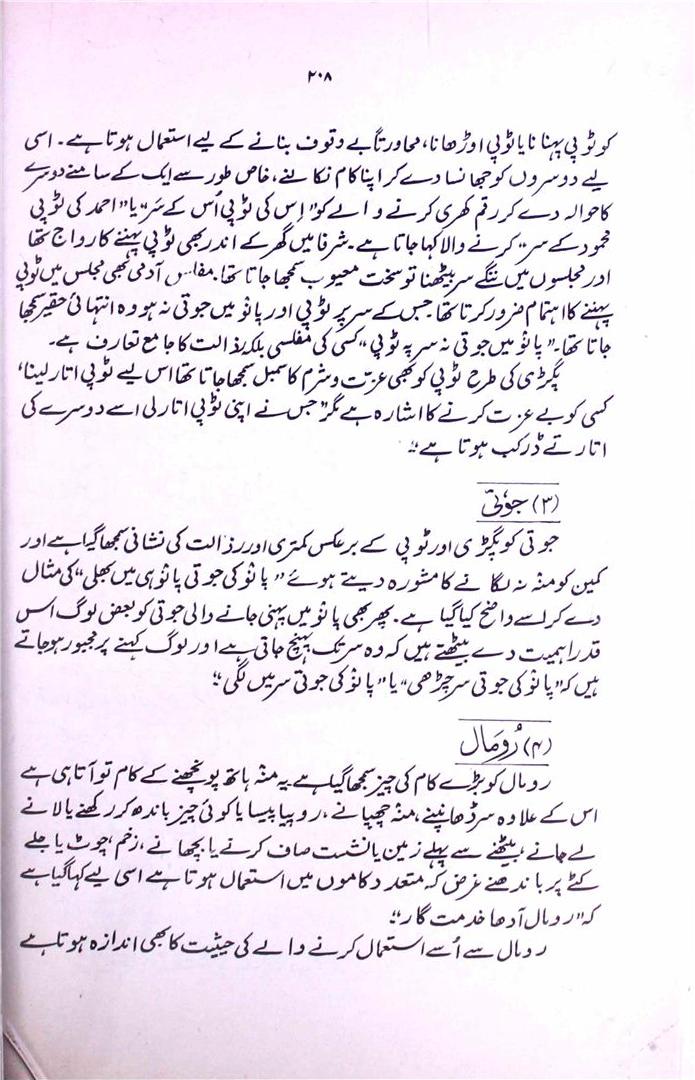 ۲۰۸
کو ٹوپی پہنانا یا ٹوپی اوڑھانا، محاورتاً بے وقوف بنانے کے لیے استعمال ہوتا ہے۔ اسی
لیے دوسروں کو جھانسا دے کر اپنا کام نکالنے، خاص طور سے ایک کے سامنے دوسرے
کا حوالہ دے کر رقم کھری کرنے والے کو "اِس کی ٹوپی اُس کے سر" یا "احمد کی ٹوپی
محمود کے سر" کرنے والا کہا جاتا ہے۔ شرفا میں گھر کے اندر بھی ٹوپی پہننے کا رواج تھا
اور مجلسوں میں ننگے سر بیٹھنا تو سخت معیوب سمجھا جاتا تھا۔ مفلس آدمی بھی مجلس میں ٹوپی
پہننے کا اہتمام ضرور کرتا تھا۔ جس کے سر پر ٹوپی اور پانو میں جوتی نہ ہو وہ انتہائی حقیر سمجھا
جاتا تھا۔ "پانو میں جوتی نہ سر پہ ٹوپی" کسی کی مفلسی بلکہ ذالت کا جامع تعارف ہے۔
پگڑی کی طرح ٹوپی کو بھی عزّت و شرم کا سمبل سمجھا جاتا تھا اس لیے ٹوپی اتار لینا،
کسی کو بے عزت کرنے کا اشارہ ہے مگر "جس نے اپنی ٹوپی اتار لی اسے دوسرے کی
اتارتے ڈر کب ہوتا ہے"۔
(۳) جوتی
جوتی کو پگڑی اور ٹوپی کے برعکس کمتری اور رذالت کی نشانی سمجھا گیا ہے اور
کمین کو منہ نہ لگانے کا مشورہ دیتے ہوئے "پانو کی جوتی پانو ہی میں بھلی" کی مثال
دے کر اسے واضح کیا گیا ہے۔ پھر بھی پانو میں پہنی جانے والی جوتی کو بعض لوگ اس
قدر اہمیت دے بیٹھتے ہیں کہ وہ سر تک پہنچ جاتی ہے اور لوگ کہنے پر مجبور ہو جاتے
ہیں کہ "پانو کی جوتی سر چڑھی" یا "پانو کی جوتی سر میں لگی"۔
(۴) رُومال
رومال کو بڑے کام کی چیز سمجھا گیا ہے۔ یہ منہ ہاتھ پونچھنے کے کام تو آتا ہی ہے
اس کے علاوہ سر ڈھانپنے، منہ چھپانے، روپیا پیسا یا کوئی چیز باندھ کر رکھنے یا لانے
لے جانے، بیٹھنے سے پہلے زمین یا نشست صاف کرنے یا بچھانے، زخم، چوٹ یا جلے
کٹے پر باندھنے غرض کہ متعدد کاموں میں استعمال ہوتا ہے اسی لیے کہا گیا ہے
کہ "رومال آدھا خدمت گار"۔
رومال سے اُسے استعمال کرنے والے کی حیثیت کا بھی اندازہ ہوتا ہے